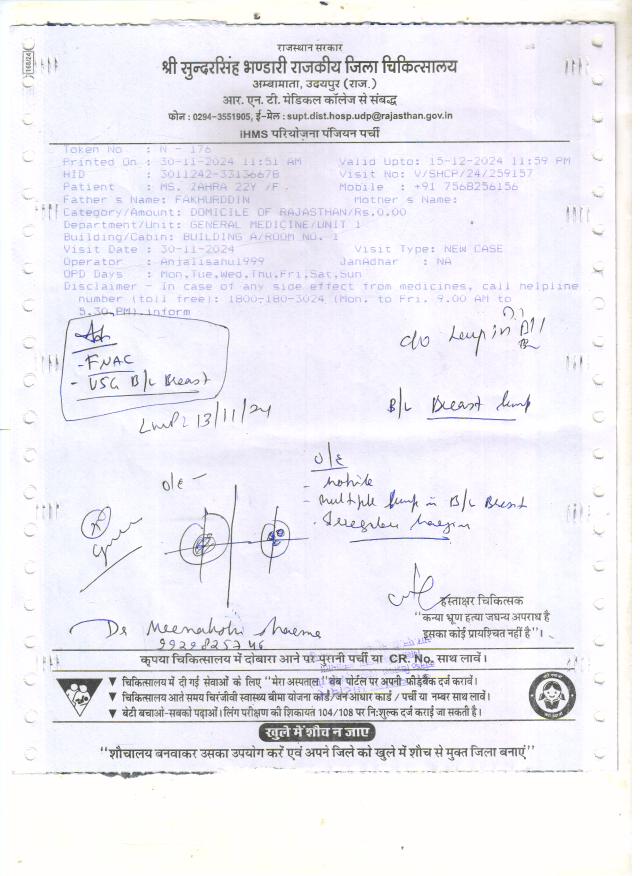 राजस्थान सरकार
श्री सुन्दरसिंह भण्डारी राजकीय जिला चिकित्सालय
अम्बामाता, उदयपुर (राज.)
आर. एन. टी. मेडिकल कॉलेज से संबद्ध
फोन : 0294-3551905, ई-मेल : supt.dist.hosp.udp@rajasthan.gov.in
iHMS परियोजना पंजियन पर्ची
Token No : N - 176
Printed On : 30-11-2024 11:51 AM Valid Upto: 15-12-2024 11:59 PM
HID : 3011242-33136678 Visit No: V/SHCP/24/259157
Patient : MS. ZAHRA 22Y /F. Mobile : +91 7568256156
Father s Name: FAKHURDDIN Mother s Name:
Category/Amount: DOMICILE OF RAJASTHAN/Rs.0.00
Department/Unit: GENERAL MEDICINE/UNIT 1
Building/Cabin: BUILDING A/ROOM NO. 1
Visit Date : 30-11-2024 Visit Type: NEW CASE
Operator : Anjalisahu1999 JanAdhar : NA
OPD Days : Mon,Tue,Wed,Thu,Fri,Sat,Sun
Disclaimer - In case of any side effect from medicines, call helpline
number (toll free): 1800-180-3024 (Mon. to Fri. 9.00 AM to
5.30 PM).inform
Adv
- FNAC
- USG B/L Breast
c/o lump in B/L
LMP: 13/11/24
B/L Breast lump
O/E -
O/E
- mobile
- multiple lump in B/L Breast
- Irregular margin
हस्ताक्षर चिकित्सक
"कन्या भ्रूण हत्या जघन्य अपराध है
इसका कोई प्रायश्चित नहीं है"।
Dr Meenakshi Sharma
9929825746
कृपया चिकित्सालय में दोबारा आने पर पुरानी पर्ची या CR. No. साथ लावें।
▼ चिकित्सालय में दी गई सेवाओं के लिए "मेरा अस्पताल" वेब पोर्टल पर अपनी फीडबैक दर्ज करावें।
▼ चिकित्सालय आते समय चिरंजीवी स्वास्थ्य बीमा योजना कार्ड/जन आधार कार्ड / पर्ची या नम्बर साथ लावें।
▼ बेटी बचाओ-सबको पढ़ाओ। लिंग परीक्षण की शिकायत 104/108 पर नि:शुल्क दर्ज कराई जा सकती है।
खुले में शौच न जाए
"शौचालय बनवाकर उसका उपयोग करें एवं अपने जिले को खुले में शौच से मुक्त जिला बनाएं"